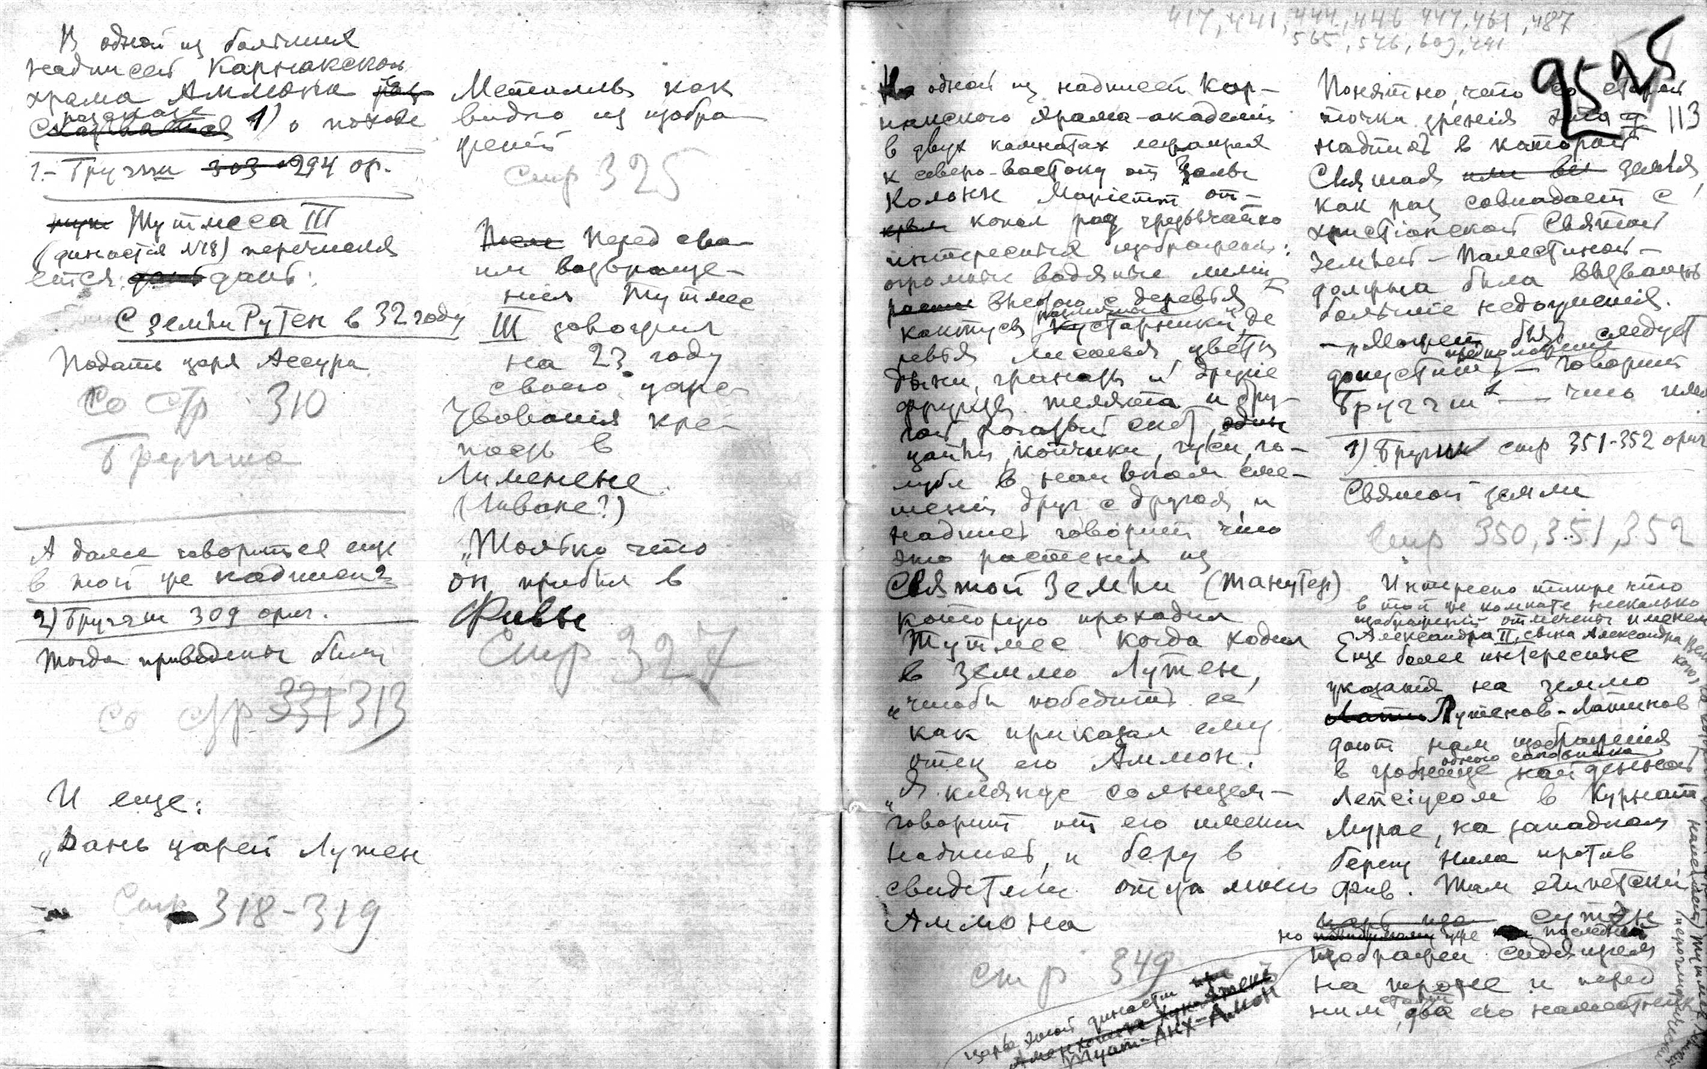 В одной из больших
надписей Карнакского
храма Аммона
рассказ 1) о походе
1 - Бругш 294 ор.
Тутмеса III
(династия №18) перечисля
ется дань:
С земли Рутен в 32 году
Подать царя Ассура
Со стр 310
Бругша
А далее говорится еще
в той же надписи 2
2) Бругш 309 ориг.
Тогда приведены были
со стр 313
И еще:
„Дань царей Лутен
Стр 318-319
Металль как
видно из изобра
жений
стр 325
Перед сво
им возвраще-
нием Тутмес
III завоевал
на 23 году
своего царс-
твования кре-
пость в
Лименене
(Ливане?)
„Только что
он прибыл в
Фивы
Стр 327
417, 441, 444, 446 447, 461, 487
565, 546, 609, 491
9525
113
На одной из надписей Кар-
накского храма-академии
в двух комнатах лежащих
к северо-востоку от залы
Колонн Мариетт от-
копал ряд чрезвычайно
интересных изображений:
огромные водяные лилии
вместе с деревья
кактуса кустарники, де
ревья лиственные цветы
дыни, гранаты и другие
фрукты телята и дру-
гой рогатый скот,
цапли, копчики, гуси, го-
луби в
друг с другом, и
надпись говорит что
это растения из
Святой Земли (Танутер)
которую проходил
Тутмес когда ходил
в Землю Лутен,
„чтобы победить ее
как приказал ему
отец его Аммон.
„Я клянусь солнцем -
говорит от его имени
надпись, и беру в
свидетели отца моего
Аммона
стр 349
царь этой династии
Туат-Анх-Амон
Понятно, что со старой
точки зрения эта
надпись в которой
Святая земля,
как раз совпадает с
христіанской Святой
Землей - Палестиной -
должна была вызвать
большие недоумения.
- „Может быть следует
предположить - говорит
Бругш - что
1) Бругш стр 351-352 ориг
Святой земли
Стр 350, 351, 352
Интересно также что
в той же комнате несколько
изображений отмечены именем
Александра II, сына Александра
Еще более интересные
указания на землю
Лутенов-Латинов
дают нам изображения
одного сановника
в гробнице найденной
Лепсіусом в Курнат
Мурае, на западном
берегу Нила против
Фив. Там египетский
но последний
изображен сидящим
на троне и перед
ним стоят два его наместника